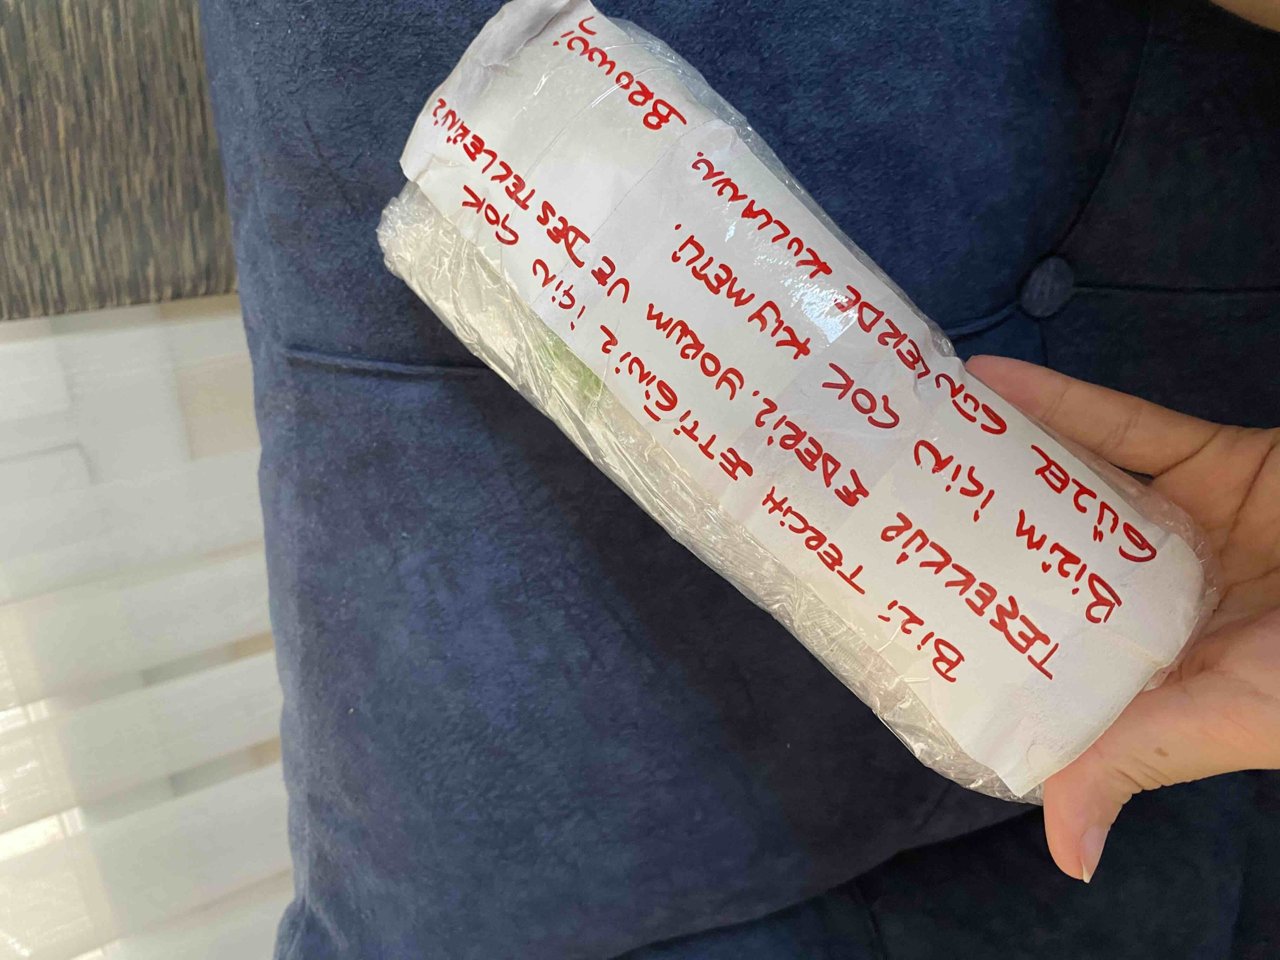 BİZİ TERCİH ETTİĞİNİZ İÇİN ÇOK
TEŞEKKÜR EDERİZ. YORUM VE DESTEKLERİNİZ
BİZİM İÇİN ÇOK KIYMETLİ.
GÜZEL GÜNLERDE KULLANIN.
BROWNİ